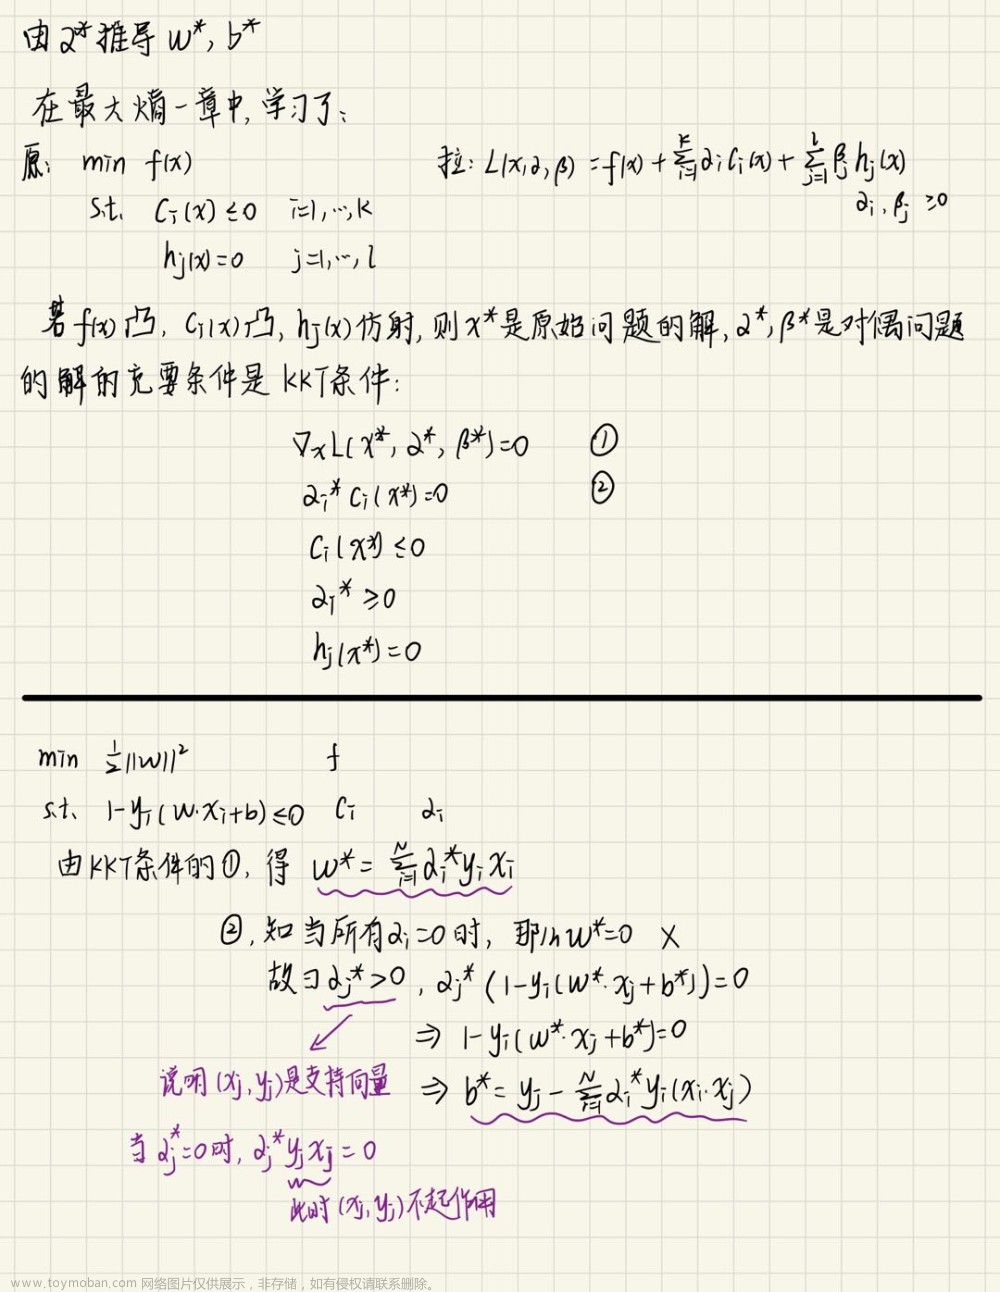 由α*推导 w*, b*
在最大熵一章中,学习了:
原: min f(x) 拉: L(x,α,β) = f(x) + Σ_{i=1}^{k} α_i c_i(x) + Σ_{j=1}^{l} β_j h_j(x)
s.t. c_i(x) ≤ 0 i=1,…,k α_i, β_j ≥ 0
h_j(x) = 0 j=1,…,l
若 f(x)凸, c_i(x)凸, h_j(x)仿射, 则x*是原始问题的解, α*, β*是对偶问题
的解的充要条件是 KKT条件:
∇_x L(x*, α*, β*) = 0 ①
α_i* c_i(x*) = 0 ②
c_i(x*) ≤ 0
α_i* ≥ 0
h_j(x*) = 0
min ½||w||² f
s.t. 1-y_i(w·x_i+b) ≤ 0 c_i α_i
由KKT条件的①, 得 w* = Σ_{i=1}^{N} α_i* y_i x_i
②, 知当所有α_i=0时, 那么w*=0 ×
故∃ α_j* > 0, α_j* (1-y_i(w*·x_j+b*)) = 0
⇒ 1-y_i(w*·x_j+b*) = 0
说明(x_j,y_j)是支持向量 ⇒ b* = y_j - Σ_{i=1}^{N} α_i* y_i(x_i·x_j)
当α_j*=0时, α_j* y_j x_j = 0
此时(x_j,y_j)不起作用
www.toymoban.com 网络图片仅供展示,非存储,如有侵权请联系删除。